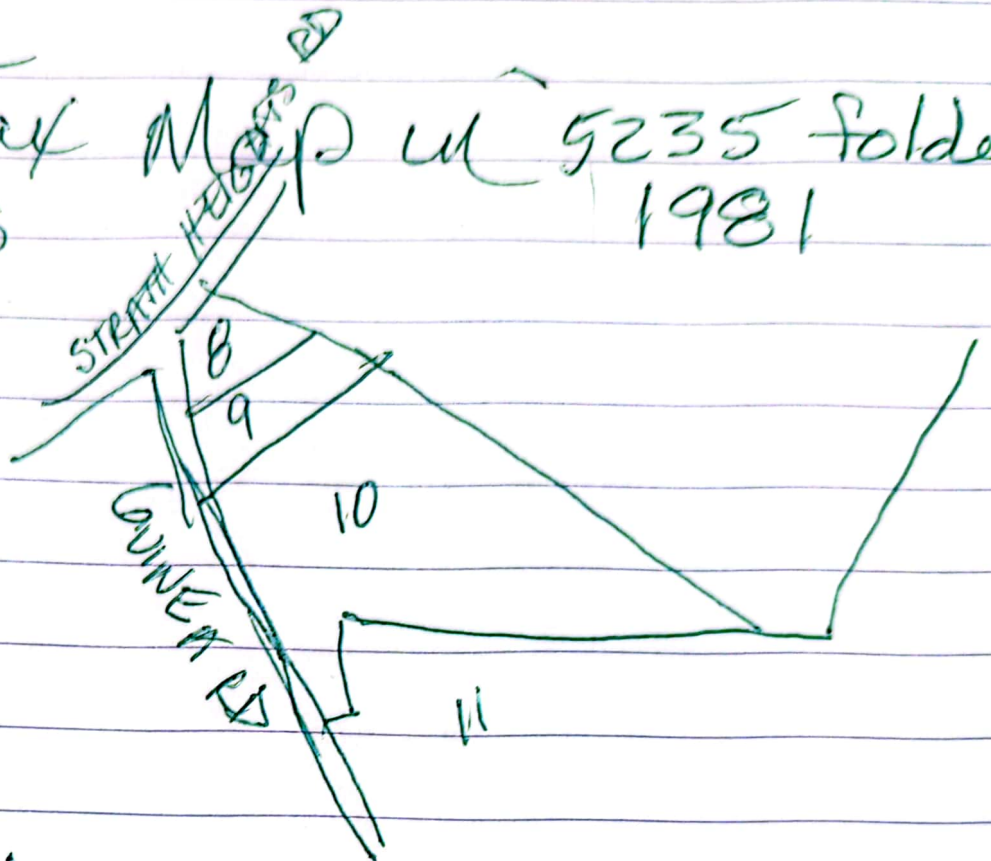 RD
Map in 5235 folde
1981
STRATH HEIGHTS
8
9
10
GUINEA RD
11